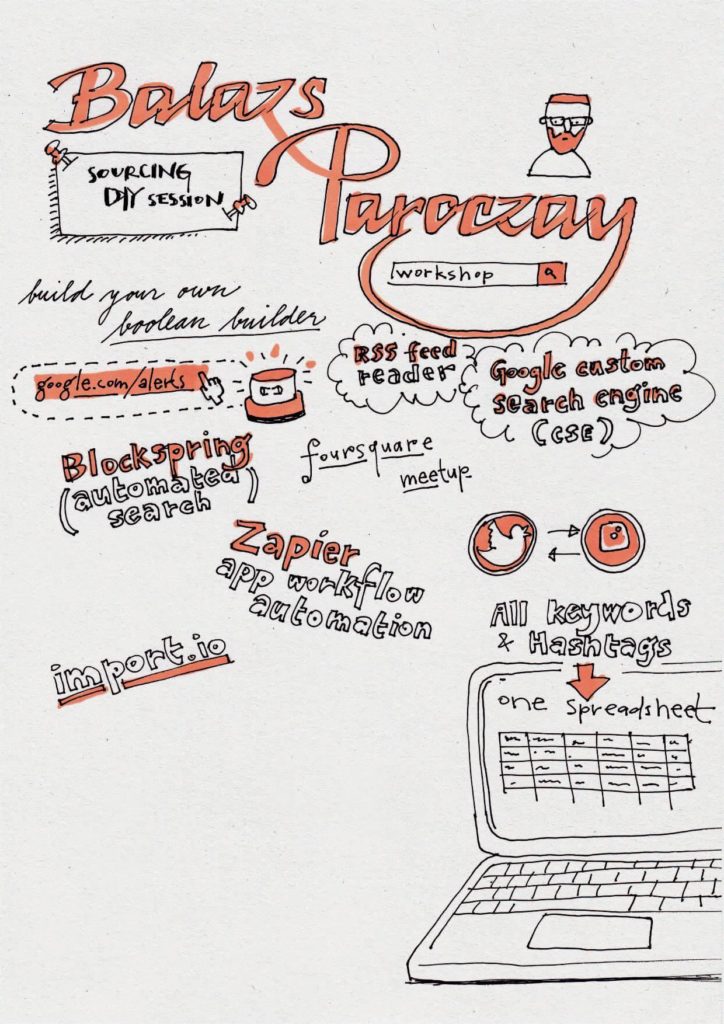 Balazs
Paroczay
SOURCING
DIY SESSION
workshop
build your own
boolean builder
google.com/alerts
RSS feed
reader
Google custom
search engine
(CSE)
Blockspring
(automated
search)
foursquare
meetup
Zapier
app workflow
automation
All keywords
& Hashtags
import.io
one spreadsheet